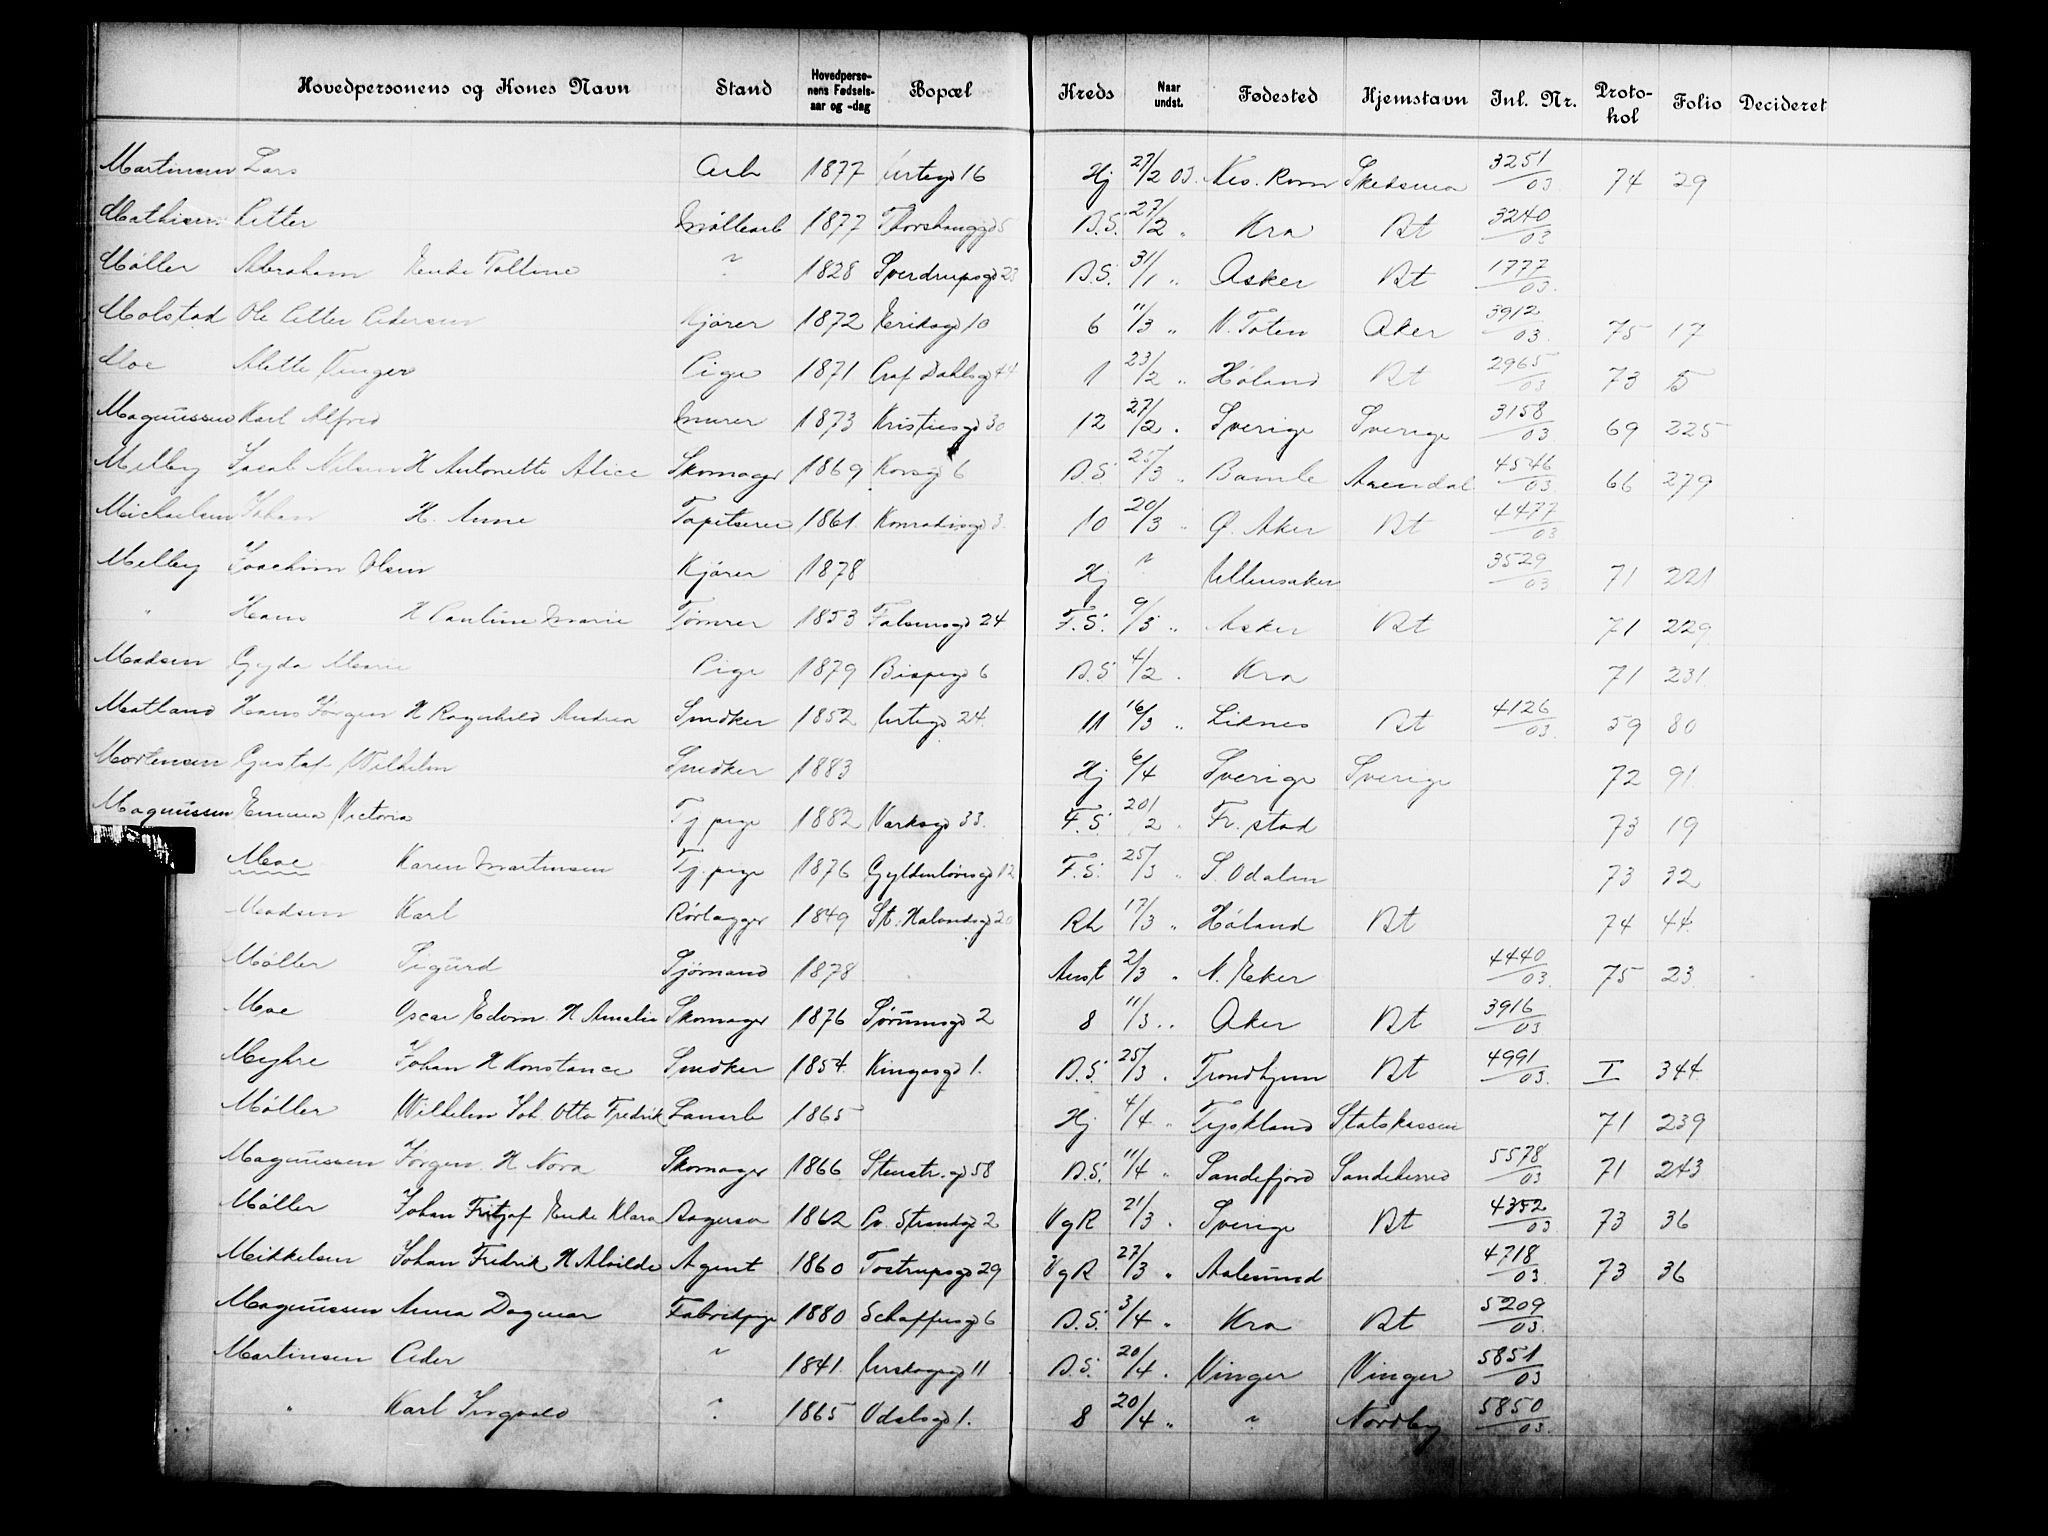 Hovedpersonens og Kones Navn Stand Hovedperso-nens Fødsels-aar og -dag Bopæl Kreds Naar undst. Fødested Hjemstavn Inl. Nr. Proto-kol Folio Decideret
Martinsen Lars Arb 1877 Urtegd 16 Hj 27/2 03. Nes. Rom Skedsmo 3251/03 74 29
Mathisen Petter Møllearb 1877 Thorshauggd 5 B.S. 27/2 " Kra Bt 3240/03
Møller Abraham Enke Talline " 1828 Sverdrupsgd 23 B.S. 31/1 " Asker Bt 1777/03.
Molstad Ole Petter Pedersen Kjører 1872 Eriksgd 10 6 11/3 " V. Toten Aker 3912/03. 75 17
Moe Alette Vinger Pige 1871 Prof Dahlsgd 44 1 23/2 " Høland Bt 2965/03 73 5
Magnussen Karl Alfred Murer 1873 Kristiesgd 30 12 27/2 " Sverige Sverige 3158/03 69 225
Melby Jacob Nilsen H Antonette Alice Skomager 1869 Korsgd 6 B.S 25/3 " Bamle Arendal 4546/03 66 279
Michaelsen Johan H. Anne Tapetserer 1861. Konradisgd 3. 10 20/3 " Ø. Aker Bt 4477/03
Melby Joachim Olsen Kjører 1878 Hj " Ullensaker 3529/03 71 221
" Hans H Pauline Marie Tømrer 1853 Falsensgd 24 F.S. 9/3 " Asker Bt 71 229
Madsen Gyda Marie Pige 1879 Bispegd 6 B.S 4/2 " Kra 71 231.
Matland Hans Jørgen H Ragnhild Andrea Snedker 1852 Urtegd 24. 11 16/3 " Liknes Bt 4126/03. 59 80
Mortensen Gustaf Wilhelm Snedker 1883 Hj 6/4 Sverige Sverige 72 91
Magnussen Emma Victoria Tj pige 1882 Verksgd 33. F.S. 20/2 " Fr. stad 73 19
Moe Karen Martinsen Tj. pige 1876 Gyldenløvesgd 12 F.S. 25/3 " S. Odalen 73 32
Madsen Karl Rørlægger 1849 St. Halvardsgd 20 Rh 17/3 " Høland Bt 74 44.
Møller Sigurd Sjømand 1878 Anst 2/3 " N. Eker 4440/03. 75 23
Moe Oscar Edvin. H Amalie Skomager 1876 Sørumsgd 2 8 11/3 " Aker Bt 3916/03
Myhre Johan H Konstance Snedker 1854. Kingosgd 1. B.S. 25/3 " Trondhjem Bt 4991/03. I 344
Møller Wilhelm Joh. Otto Fredrik 1865 Hj 4/4 " Tyskland Statskassen 71 239
Magnussen Jørgen. H Nora Skomager 1866 Stenstr.gd 58 B.S. 11/4 " Sandefjord Sandeherred 5578/03 71 243
Møller Johan Fritjof Enke Klara 1862 Pv. Strandgd 2 VgR 21/3 " Sverige Bt 4352/03 73 36
Mikkelsen Johan Fredrik H Alvilde Agent 1860 Tostrupsgd 29 VgR 27/3 " Aalesund 4718/03. 73 36
Magnussen Anna Dagmar Fabrikpige 1880 Schaffersgd 6 B.S. 3/4 " Kra Bt 5209/03.
Martinsen Peder " 1841. Urskoggd 11 B.S. 20/4 " Vinger Vinger 5851/03
" Karl Ingvald " 1865 Odalsgd 1. 8 20/4 " " Nordby 5850/03.